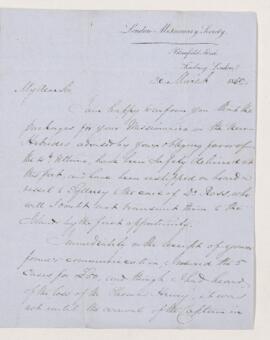 London Missionary Society,
Blomfield Street
Finsbury London
20 March 18
My dear Sir
I am happy to inform you that the
packages for your Missionaries in the New
Hebrides advised by your obliging favor of
the 4th have been safely delivered at
this port, and have been reshipped on board a
vessel to Sydney to the care of Dr. Ross, who
will I doubt not transmit them to the
Island by the first opportunity.
Immediately on the receipt of your
former communication, I the 5
cases for £ and though I had heard
of the loss of the Henry, it was
not until the arrival of the Captain in